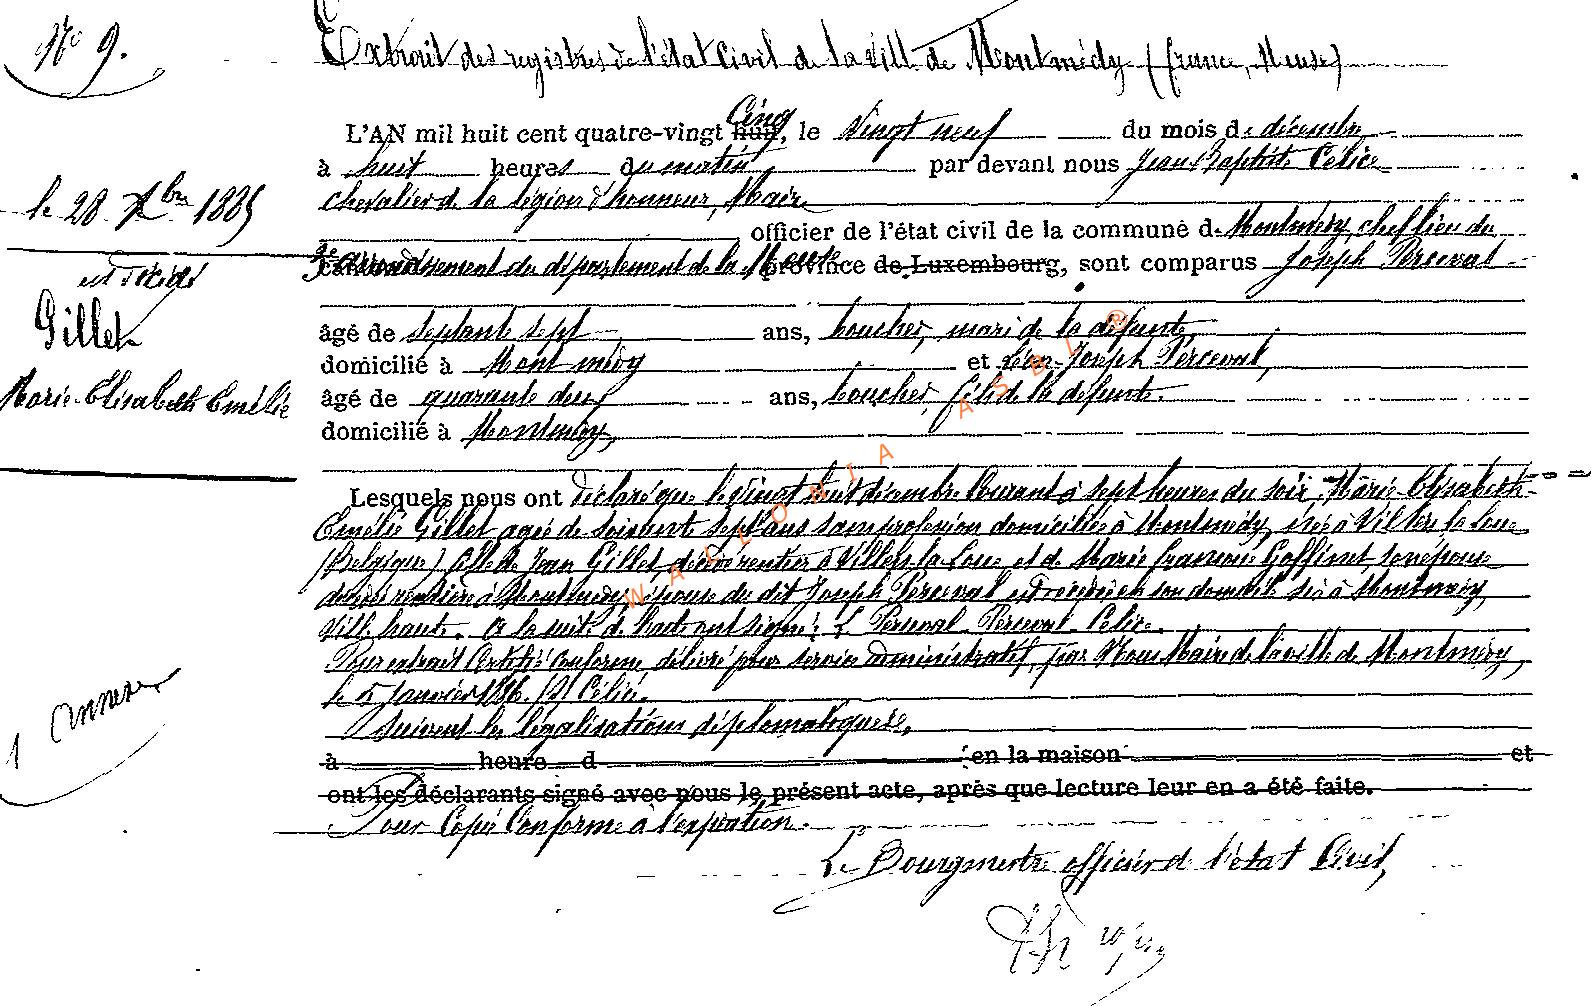 N° 9.
Extrait des registres de l'état Civil de la Ville de Montmédy (france, Meuse)
L'AN mil huit cent quatre-vingt huit, Cinq, le Vingt neuf du mois de décembre
à huit heures du matin par devant nous Jean Baptiste Célice
chevalier de la légion d'honneur, Maire
le 28 Xbre 1885
officier de l'état civil de la commune de Montmédy, chef lieu du
arrondissement du département de la Meuse province de Luxembourg, sont comparus Joseph Perceval
est décédé
Gillet
Marie-Elisabeth Emélie
âgé de septante sept ans, boucher, mari de la défunte,
domicilié à Montmédy et Léon-Joseph Perceval,
âgé de quarante deux ans, boucher, fils de la défunte.
domicilié à Montmédy,
Lesquels nous ont déclaré que le vingt huit décembre Courant à sept heures du soir, Marie-Elisabeth-
Emélie Gillet agée de soixante sept ans sans profession domiciliée à Montmédy, née à Villers la loue
(Belgique) fille de Jean Gillet, décédé rentier à Villers la Loue et de Marie françoise Goffinet, son épouse
décédée rentière à Montmédy, épouse du dit Joseph Perceval est décédée en son domicile sis à Montmédy,
Ville haute. a la suite de l'acte ont signé: L Perceval Perceval Célice.
Pour extrait Certifié Conforme, délivré pour service administratif, par Nous Maire de la ville de Montmédy,
le 5 Janvier 1886. (S) Célice.
Suivent les légalisations diplomatiques.
1 annexe
à heure d en la maison et
ont les déclarants signé avec nous le présent acte, après que lecture leur en a été faite.
Pour Copie Conforme à l'expédition.
Le Bourgmestre officier de l'état Civil,
WALLONIA ASBL ®